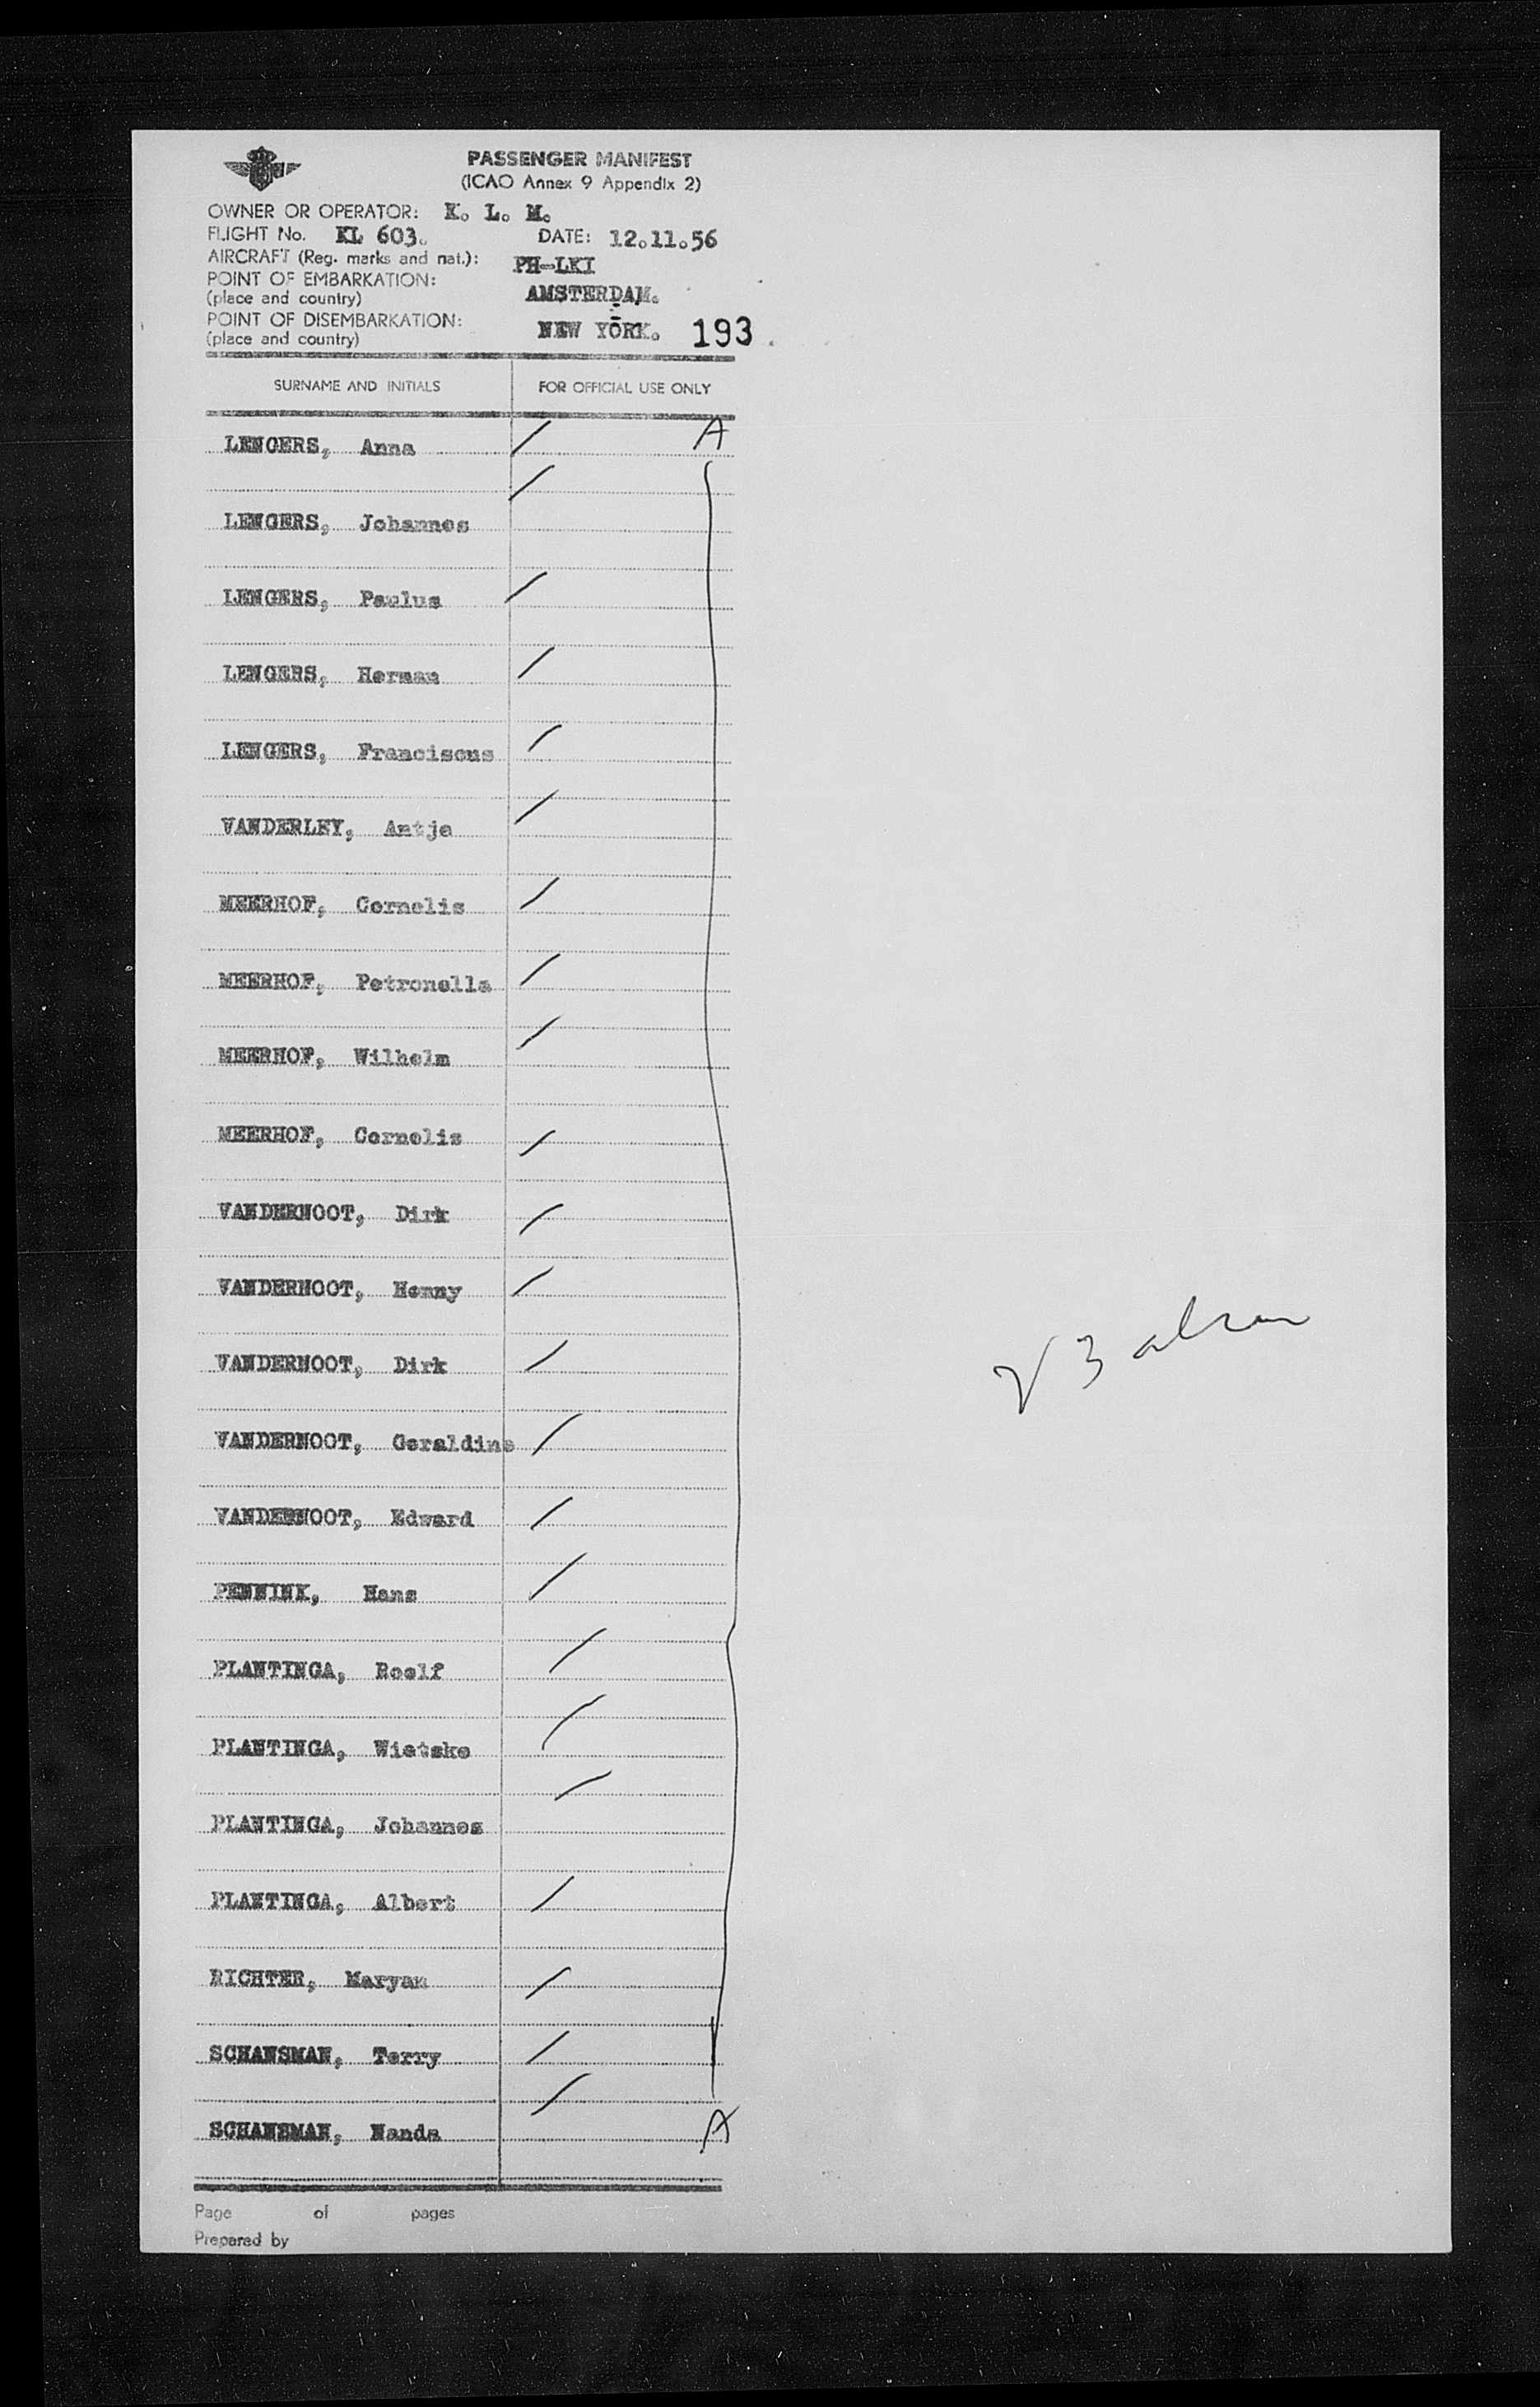 PASSENGER MANIFEST
(ICAO Annex 9 Appendix 2)
OWNER OR OPERATOR: K. L. M.
FLIGHT No. KL 603. DATE: 12.11.56
AIRCRAFT (Reg. marks and nat.): PH-LKI
POINT OF EMBARKATION:
(place and country) AMSTERDAM.
POINT OF DISEMBARKATION:
(place and country) NEW YORK. 193
SURNAME AND INITIALS FOR OFFICIAL USE ONLY
LENGERS, Anna A
LENGERS, Johannes
LENGERS, Paulus
LENGERS, Herman
LENGERS, Franciscus
VANDERLEY, Antje
MEERHOF, Cornelis
MEERHOF, Petronella
MEERHOF, Wilhelm
MEERHOF, Cornelis
VANDERNOOT, Dirk
VANDERNOOT, Henny
VANDERNOOT, Dirk
VANDERNOOT, Geraldine
VANDERNOOT, Edward
PENNINK, Hans
PLANTINGA, Roelf
PLANTINGA, Wietske
PLANTINGA, Johannes
PLANTINGA, Albert
RICHTER, Maryam
SCHANSMAN, Terry
SCHANSMAN, Nanda A
Page of pages
Prepared by